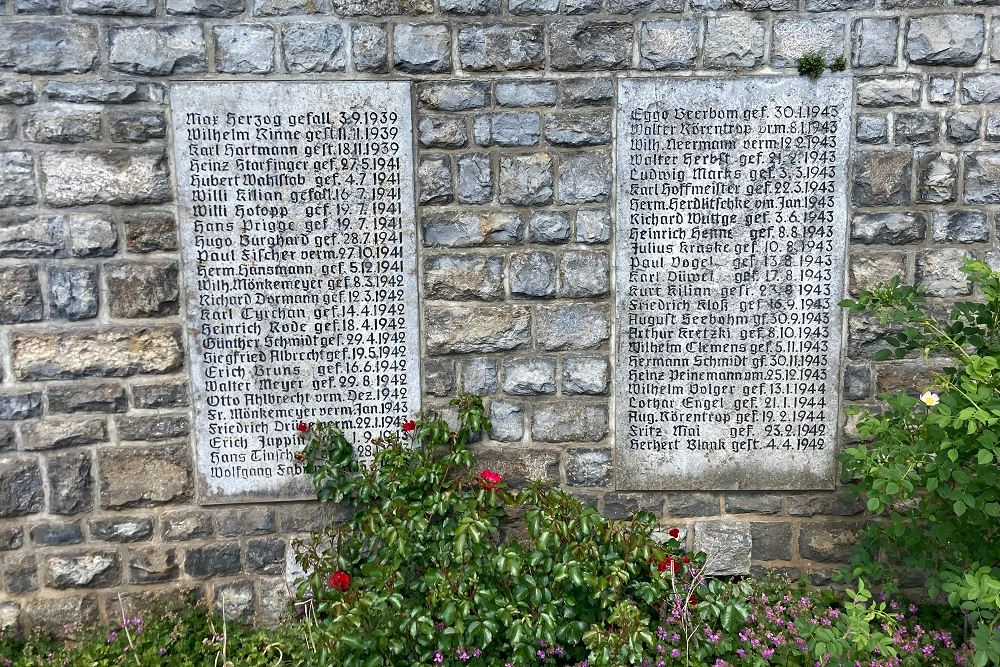 Max Herzog gefall. 3.9.1939
Wilhelm Rinne gest. 11.11.1939
Karl Hartmann gest. 18.11.1939
Heinz Starfinger gef. 27.5.1941
Hubert Wahlstab gef. 4.7.1941
Willi Kilian gefall. 16.7.1941
Willi Hotopp gef. 19.7.1941
Hans Prigge gef. 19.7.1941
Hugo Burghard gef. 28.7.1941
Paul Fischer verm. 27.10.1941
Herm. Hansmann gef. 5.12.1941
Wilh. Mönkemeyer gef. 8.3.1942
Richard Dormann gef. 12.3.1942
Karl Tyrchan gef. 14.4.1942
Heinrich Rode gef. 18.4.1942
Günther Schmidt gef. 29.4.1942
Siegfried Albrecht gef. 19.5.1942
Erich Bruns gef. 16.6.1942
Walter Meyer gef. 29.8.1942
Otto Ahlbrecht vrm. Dez. 1942
Fr. Mönkemeyer verm. Jan. 1943
Friedrich verm. 22.1.1943
Erich Juppin 1.1943
Hans 28.1.1943
Wolfgang
Eggo Beerbom gef. 30.1.1943
Walter Rörentrop vrm. 8.1.1943
Wilh. Neermann verm. 12.2.1943
Walter Herbst gef. 21.2.1943
Ludwig Marks gef. 3.3.1943
Karl Hoffmeister gef. 22.3.1943
Herm. Herdktschke vm. Jan. 1943
Richard Wuttge gef. 3.6.1943
Heinrich Henne gef. 8.8.1943
Julius Kraske gef. 10.8.1943
Paul Vogel gef. 13.8.1943
Karl Düwel gef. 17.8.1943
Kurt Kilian gest. 23.8.1943
Friedrich Kloß gef. 16.9.1943
August Seebohm gf. 30.9.1943
Arthur Kretzki gef. 8.10.1943
Wilhelm Clemens gef. 5.11.1943
Hermann Schmidt gf. 30.11.1943
Heinz Peinemann vm. 25.12.1943
Wilhelm Volger gef. 13.1.1944
Lothar Engel gef. 14.1.1944
Aug. Rörentrop gef. 19.2.1944
Fritz Mai gef. 23.2.1942
Herbert Blank gest. 4.4.1942